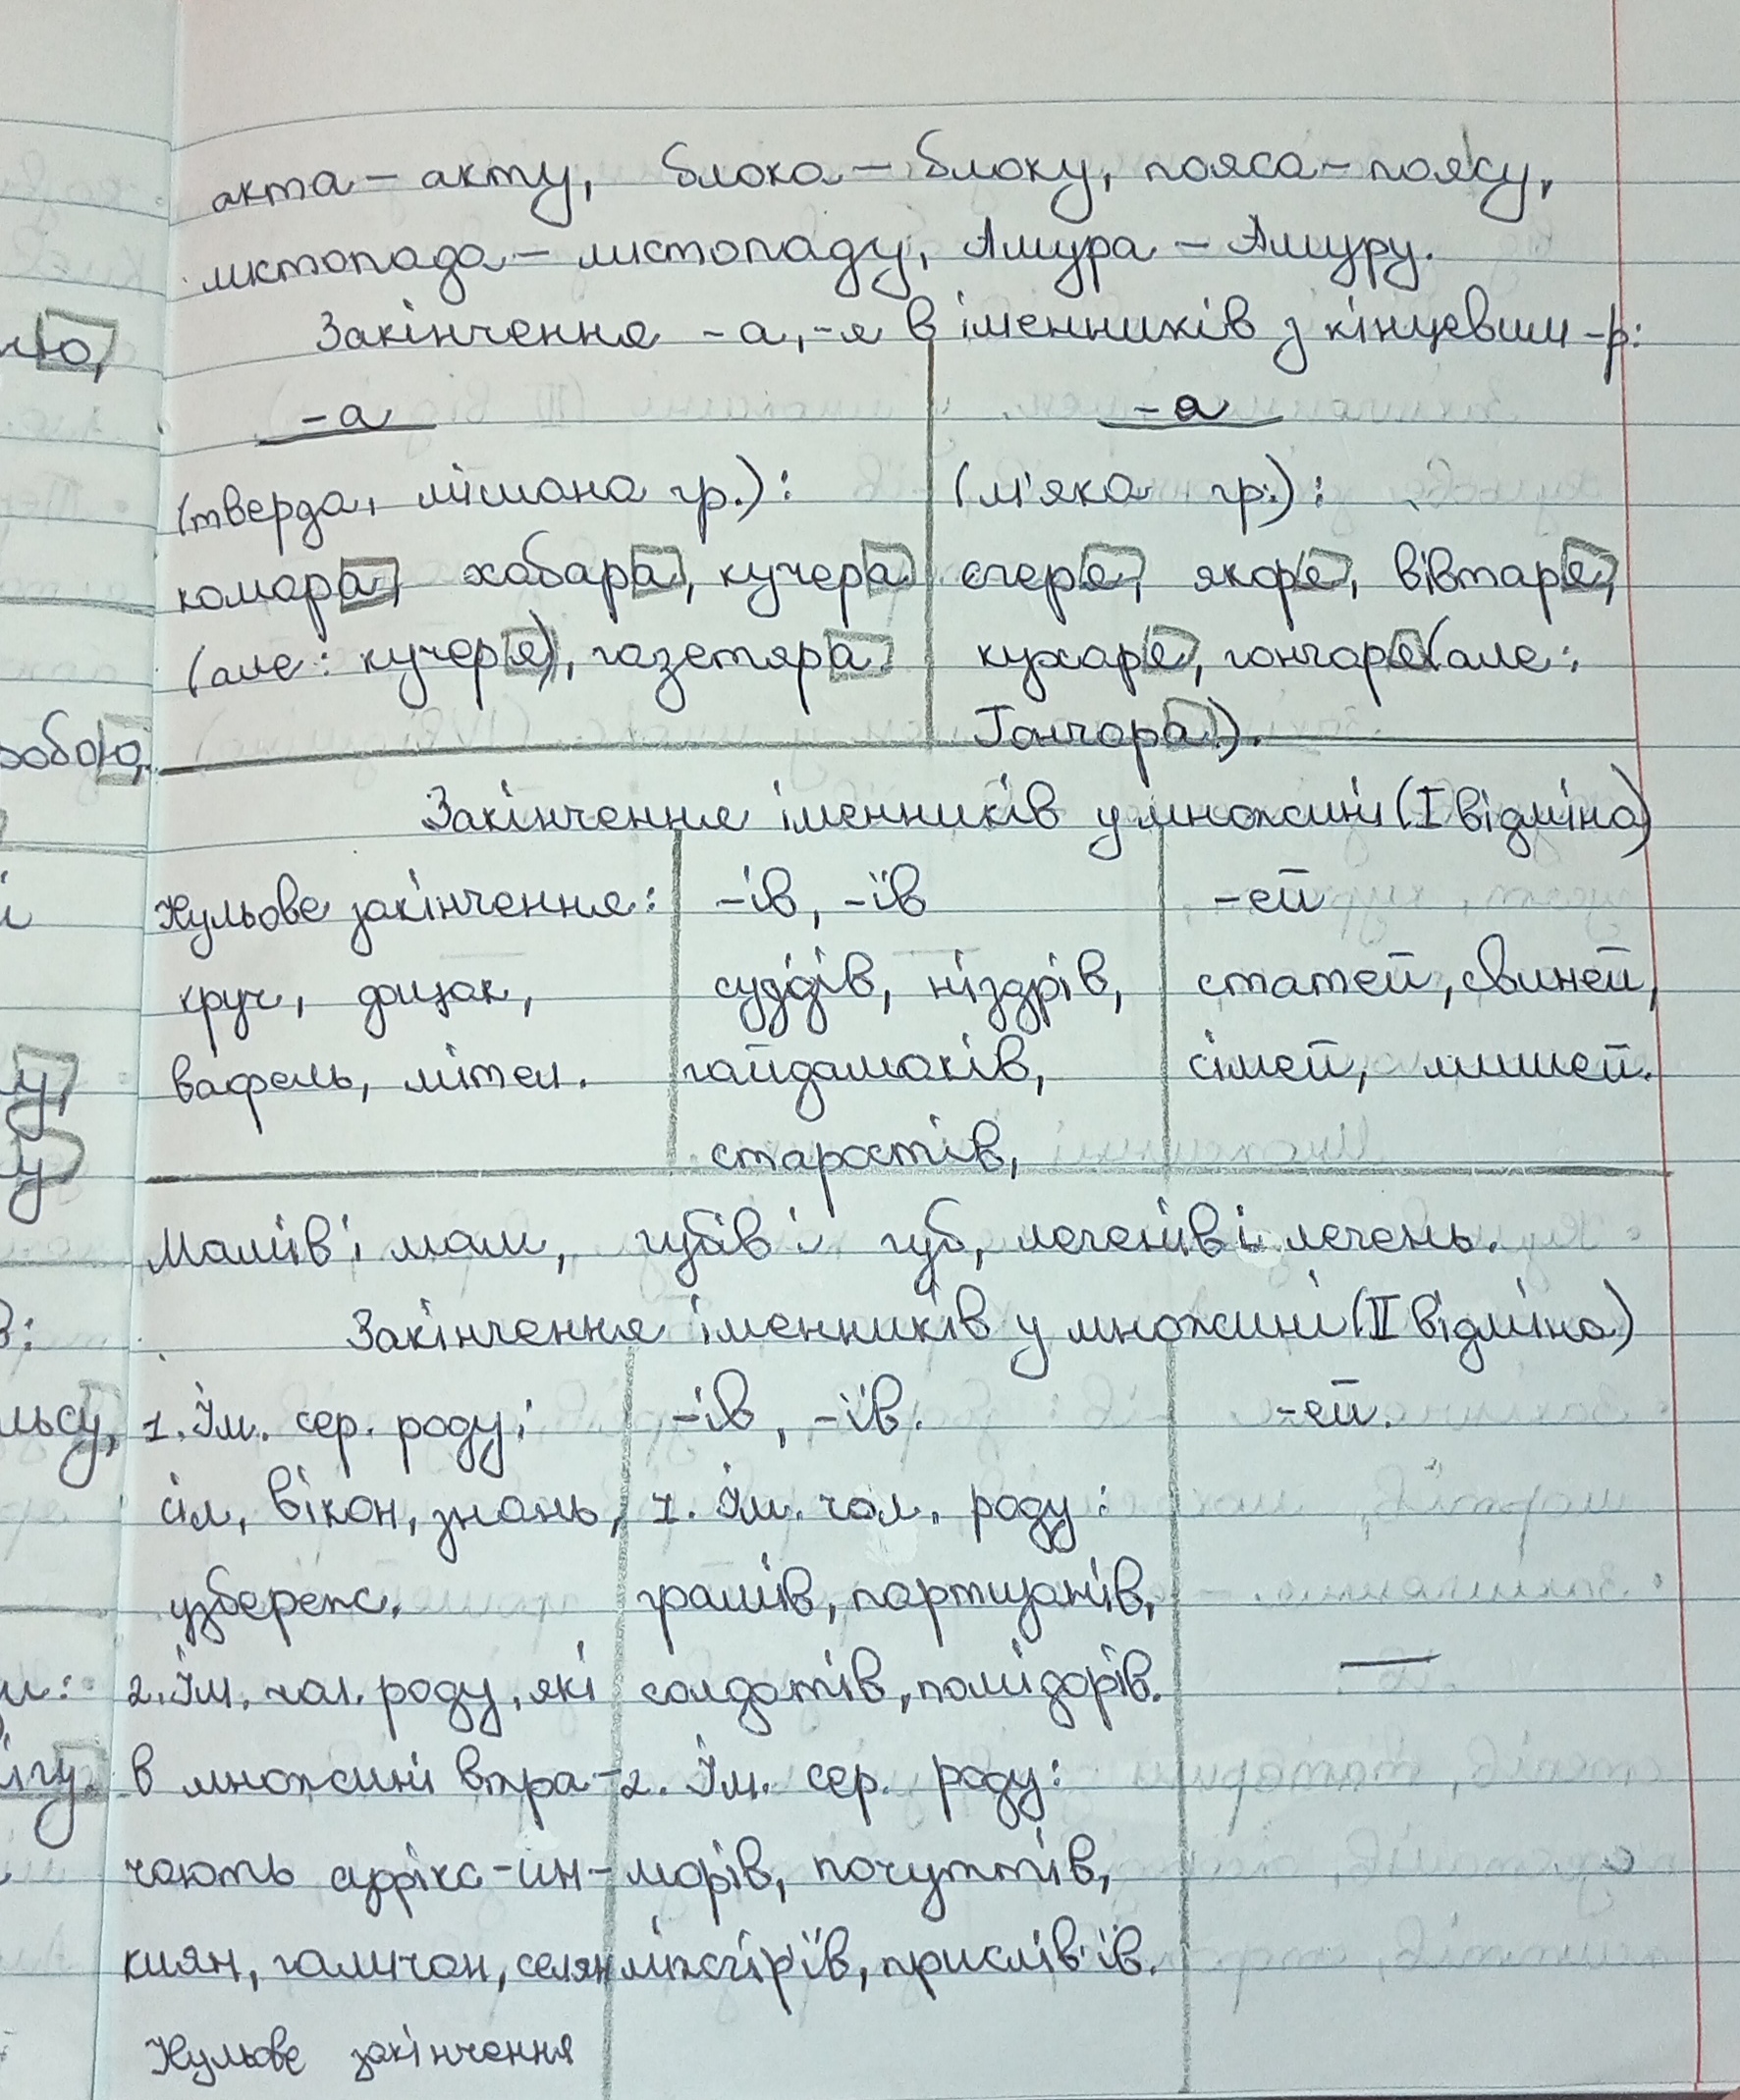 акта – акту, блока – блоку, пояса – поясу,
листопада – листопаду, Амура – Амуру.
Закінчення -а, -я в іменників з кінцевим -р:
-а -а
(тверда, мішана гр.): (м'яка гр.):
комара, хабара, кучера єгеря, якоря, вівтаря,
(але: кучеря), газетяра. кухаря, гончаря (але:
Гончара).
Закінчення іменників у множині (І відміна)
Нульове закінчення: -ів, -їв -ей
круч, фіцак, суддів, ніздрів, статей, свиней,
вафель, мітел. гайдамаків, сімей, мишей.
старостів,
Мамів і мам, губів і губ, легенів і легень.
Закінчення іменників у множині (ІІ відміна)
1. Ім. сер. роду: -ів, -їв. -ей.
сіл, вікон, знань, 1. Ім. чол. роду:
узбереж. грамів, партизанів,
2. Ім. чол. роду, які солдатів, помідорів. —
в множині втра- 2. Ім. сер. роду:
чають суфікс -ин- морів, почуттів,
киян, галичан, селян міжгір'їв, прислів'їв.
Нульове закінчення
ю,
обою,
і
у,
у
в:
льсу,
и:
ігу.